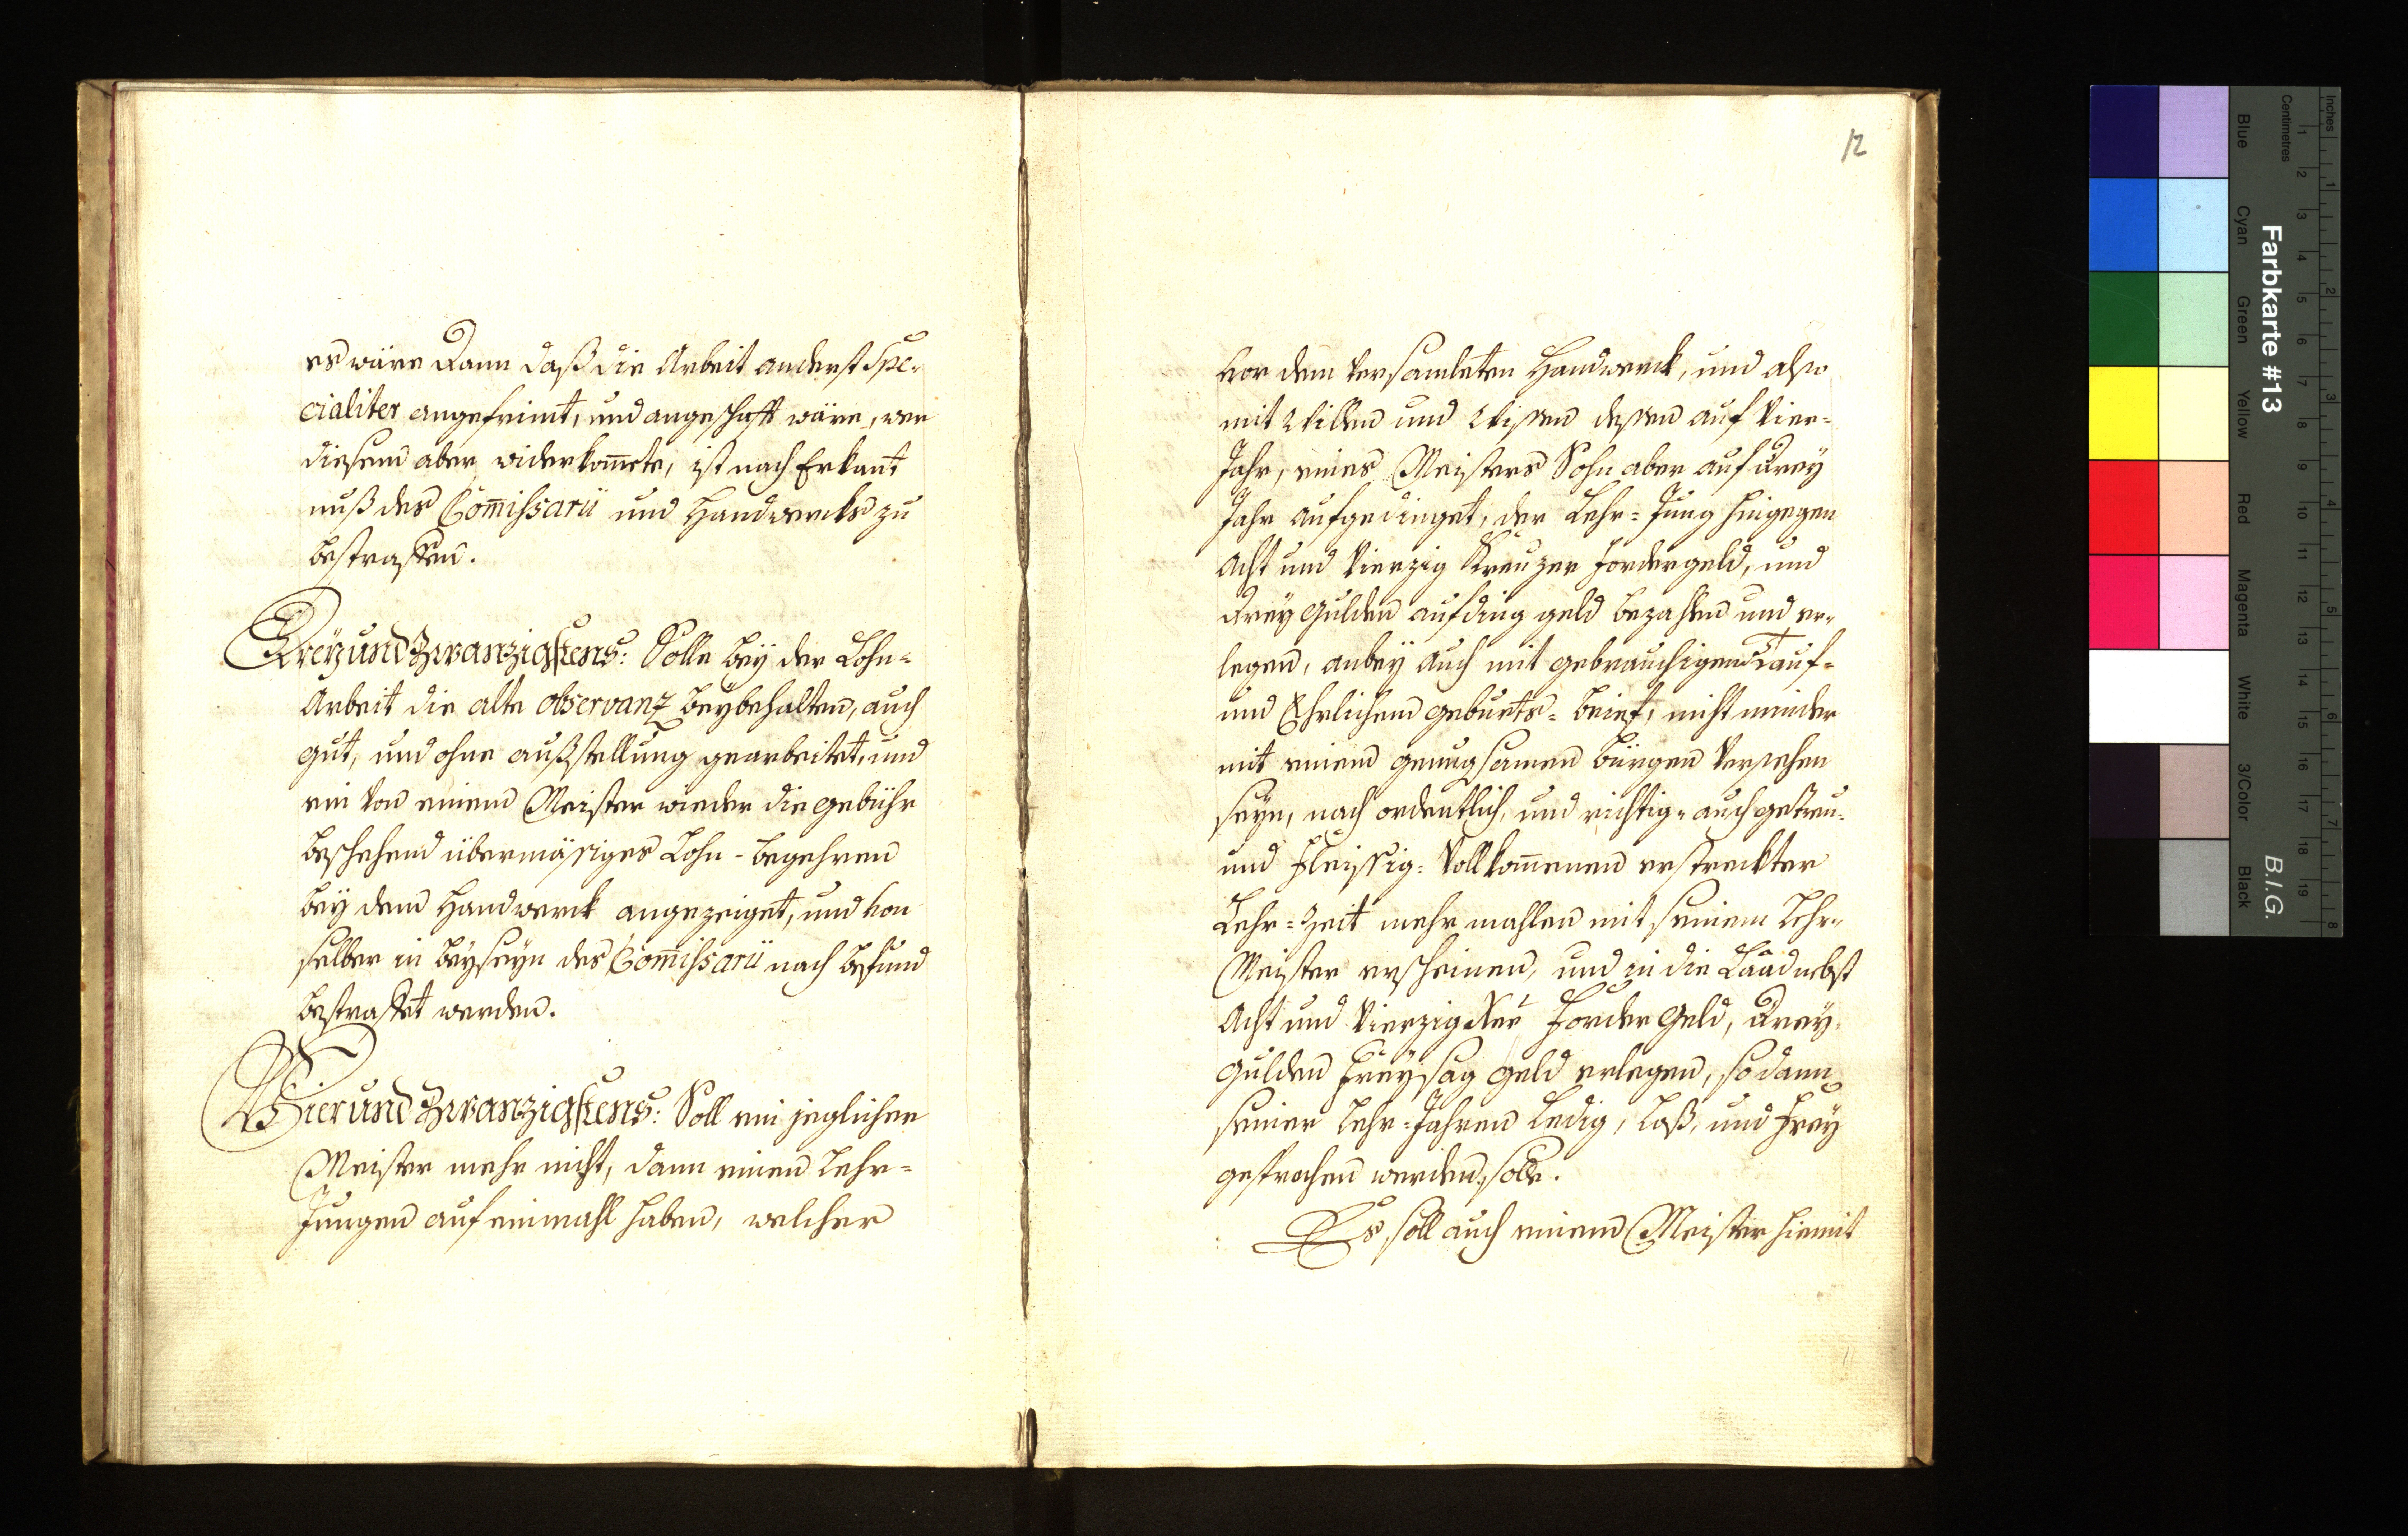 es wäre dann daß die Arbeit anderst Spe-
cialiter angefrimt, und angeschafft wäre, wer
diesem aber widerkom̅ete, ist nach Erkant
nuß des Com̅issarii und Handwercks zu
bestraffen.
Dreÿ und Zwanzigstens: Solle beÿ der Lohn-
Arbeit die alte observanz beÿbehalten, auch
gut, und ohne außstellung gearbeitet, und
ein von einem Meister wieder die gebühr
beschehend übermäsiges Lohn-begehren
beÿ dem Handwerck angezeiget, und von
selber in beÿseÿn des Com̅issarii nach befund
bestraffet werden.
Vier und Zwanzigstens: Soll ein jeglicher
Meister mehr nicht, dann einen Lehr-
Jungen auf einmahl haben, welcher
12
vor dem versamleten Handwerck, und also
mit Willen und Wissen dessen auf Vier-
Jahr, eines Meisters Sohn aber auf dreÿ
Jahr aufgedinget, der Lehr-Jung hingegen
Acht und Vierzig Kreuzer fordergeld, und
dreÿ Gulden aufding geld bezahlen und er-
legen, anbeÿ auch mit gebrauchigen Tauf-
und Ehrlichem geburts-brief, nicht minder
mit einem genugsamen bürgen versehen
seÿn, nach ordentlich, und richtig- auch getreu-
und fleissig-vollkom̅enen erstreckter
Lehr-Zeit mehrmahlen mit seinem Lehr-
Meister erscheinen, und in die Laad nebst
Acht und Vierzig Kr forder Geld, dreÿ
Gulden freÿsag Geld erlegen, so dann
seiner Lehr-Jahren Ledig, Loß, und freÿ
gesprochen werden solle.
Es soll auch einem Meister hiemit
Inches
Centimetres
Farbkarte #13
B.I.G.
Blue
Cyan
Green
Yellow
Red
Magenta
White
3/Color
Black